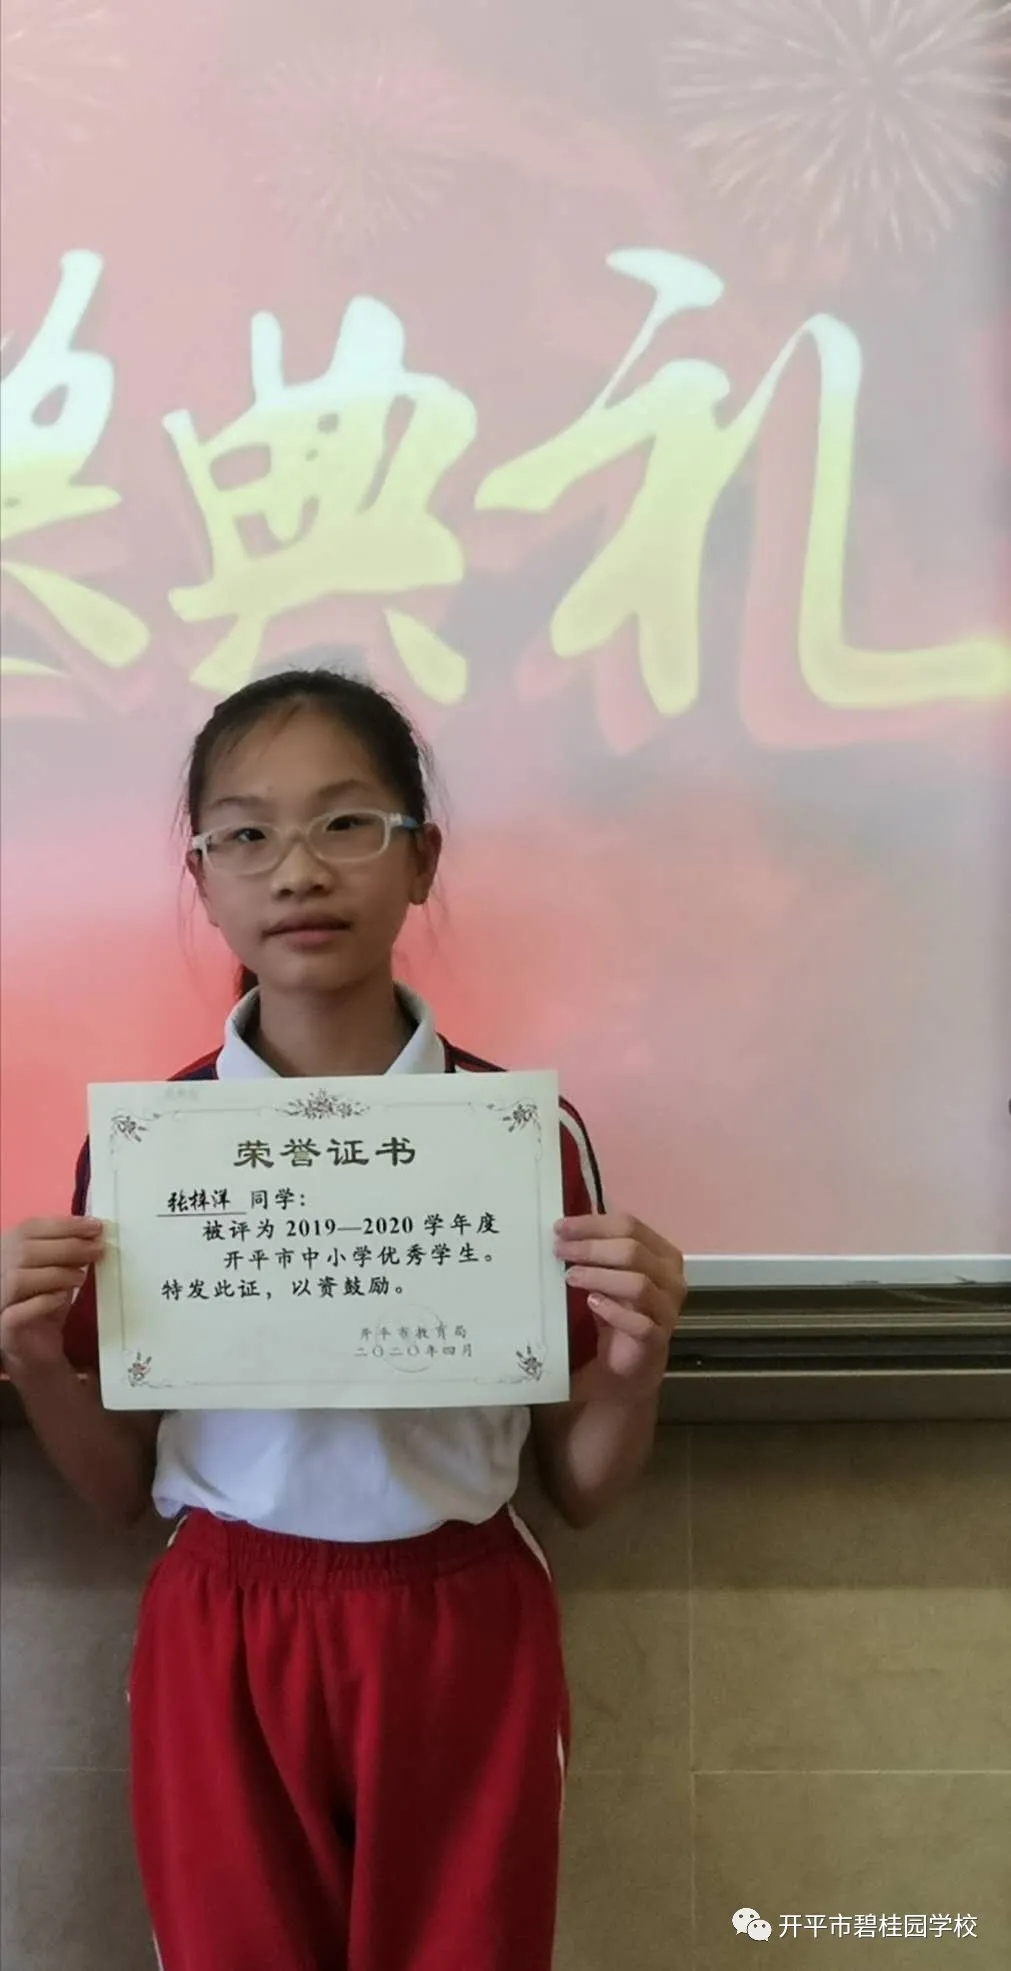 典礼
荣誉证书
张梓洋 同学：
被评为2019—2020学年度
开平市中小学优秀学生。
特发此证，以资鼓励。
开平市教育局
二〇二〇年四月
开平市碧桂园学校